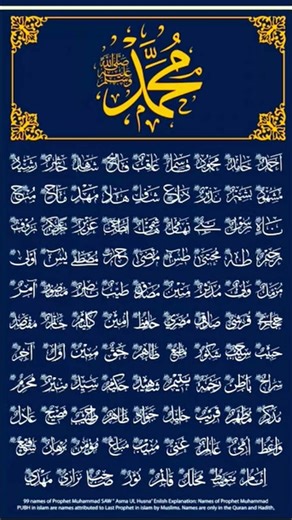 محمد
صلى الله عليه وسلم
احمد حامد محمود قاسم عاقب فاتح شاهد حاشر رشيد
مشهود بشير نذير داع شاف هاد مهد ماح منج
ناه رسول نبي تهامي هاشمي ابطحي عزيز رؤوف
رحيم طه مجتبى طس مرتضى حم مصطفى يس اولى
مزمل ولي مدثر متين مصدق طيب ناصر منصور آمر
حجازي قرشي صادق مضري حافظ امين كليم مقتصد
حبيب شكور مطيع طاهر حق مبين اول آخر
سراج باطن رحمة يتيم حكيم سيد منير محرم
مذكر مطهر قريب خليل جواد خطيب فصيح عادل
واعظ امي عالم غني منيب مبلغ مؤمن برهان شفيع
امام متوسط محلل نور نزاري مهدي
99 names of Prophet Muhammad SAW " Asma UL Husna" Enlish Explanation: Names of Prophet Muhammad
PUBH in islam are names attributed to Last Prophet in islam by Muslims. Names are only in the Quran and Hadith,